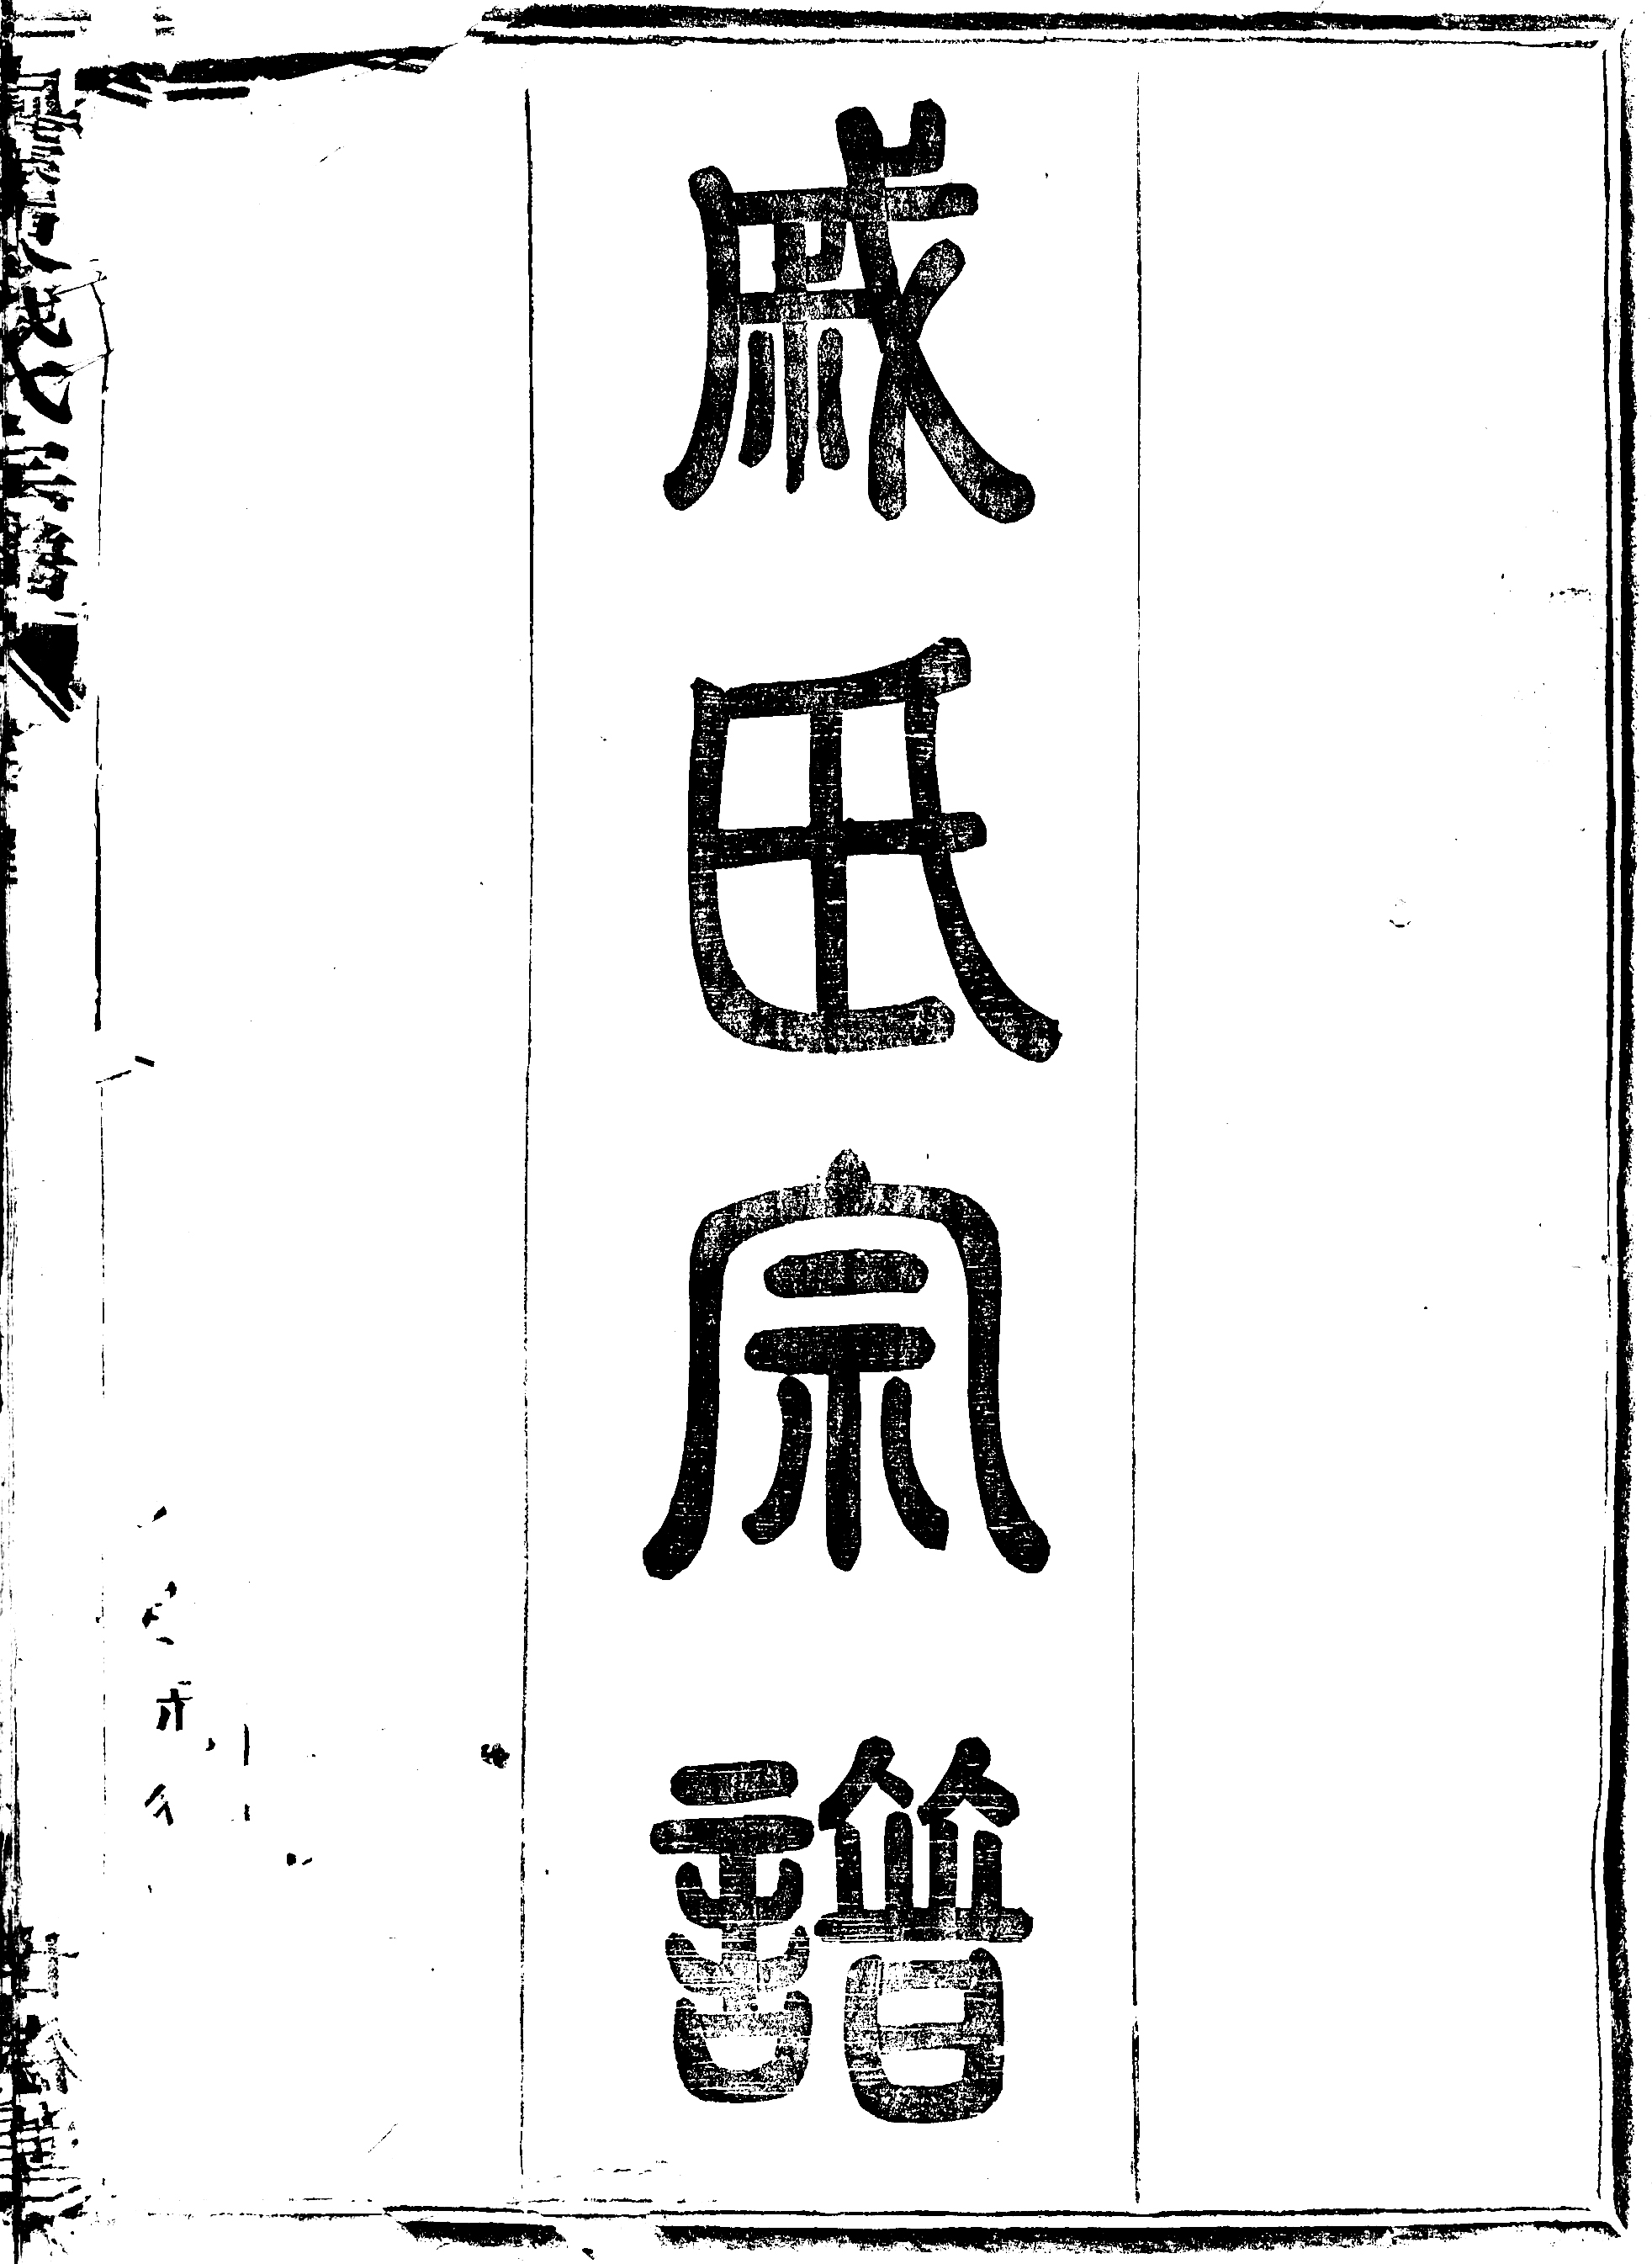 戚氏宗譜